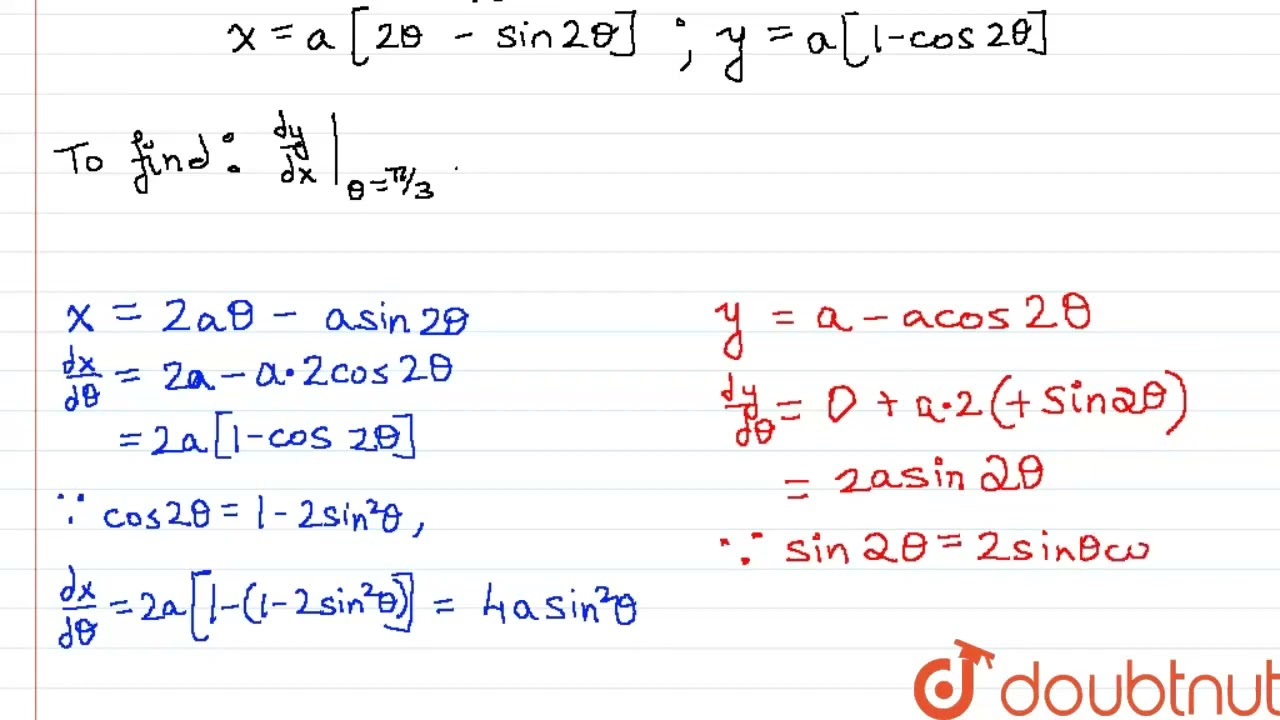 x = a[2θ - sin2θ] ; y = a[1-cos2θ]
To find: dy/dx|θ=π/3
x = 2aθ - asin2θ
dx/dθ = 2a - a·2cos2θ
= 2a[1-cos 2θ]
∵ cos2θ = 1 - 2sin²θ,
dx/dθ = 2a[1-(1-2sin²θ)] = 4asin²θ
y = a - acos2θ
dy/dθ = 0 + a·2(+sin2θ)
= 2asin2θ
∵ sin2θ = 2sinθco
doubtnut